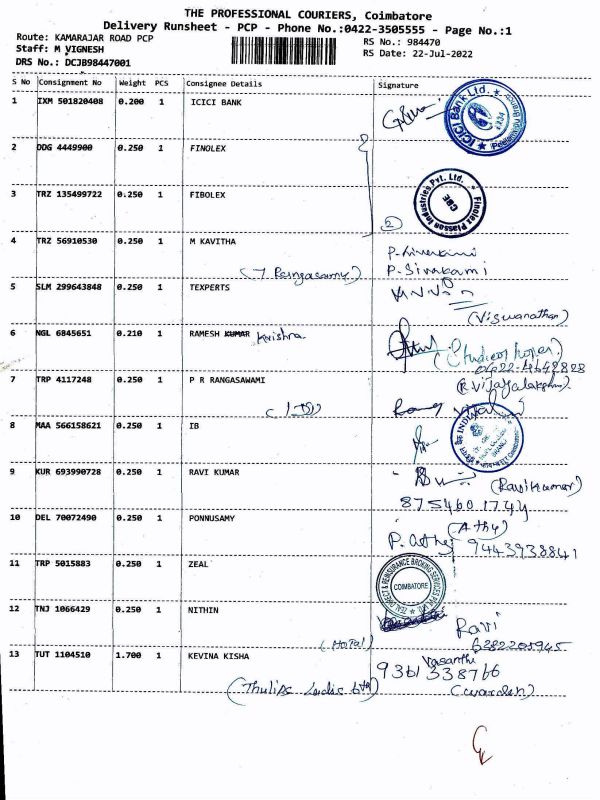 THE PROFESSIONAL COURIERS, Coimbatore
Delivery Runsheet - PCP - Phone No.:0422-3505555 - Page No.:1
Route: KAMARAJAR ROAD PCP
Staff: M VIGNESH
DRS No.: DCJB98447001
RS No.: 984470
RS Date: 22-Jul-2022
S No Consignment No Weight PCS Consignee Details Signature
1 IXM 501820408 0.200 1 ICICI BANK
ICICI Bank Ltd.
2 DDG 4449900 0.250 1 FINOLEX
3 TRZ 135499722 0.250 1 FIBOLEX
Finolex Plasson Industries Pvt. Ltd.
CBE
2
4 TRZ 56910530 0.250 1 M KAVITHA
P. Sivakami
P. Sivakami
(T Rangasamy)
5 SLM 299643848 0.250 1 TEXPERTS
(Viswanathan)
6 NGL 6845651 0.210 1 RAMESH KUMAR Krishna
7 TRP 4117248 0.250 1 P R RANGASAWAMI
(R. Vijayalakshmi)
8 MAA 566158621 0.250 1 IB
9 KUR 693990728 0.250 1 RAVI KUMAR
(Ravikumar)
8754601744
10 DEL 70072490 0.250 1 PONNUSAMY
(Athy)
P. Athy 9443938841
11 TRP 5015883 0.250 1 ZEAL
ZEAL DIRECT & REINSURANCE BROKING SERVICES PVT LTD
COIMBATORE
12 TNJ 1066429 0.250 1 NITHIN
Ravi
(Hotal) 6382205945
13 TUT 1104510 1.700 1 KEVINA KISHA
Vasanthi
9361338766
(warden)